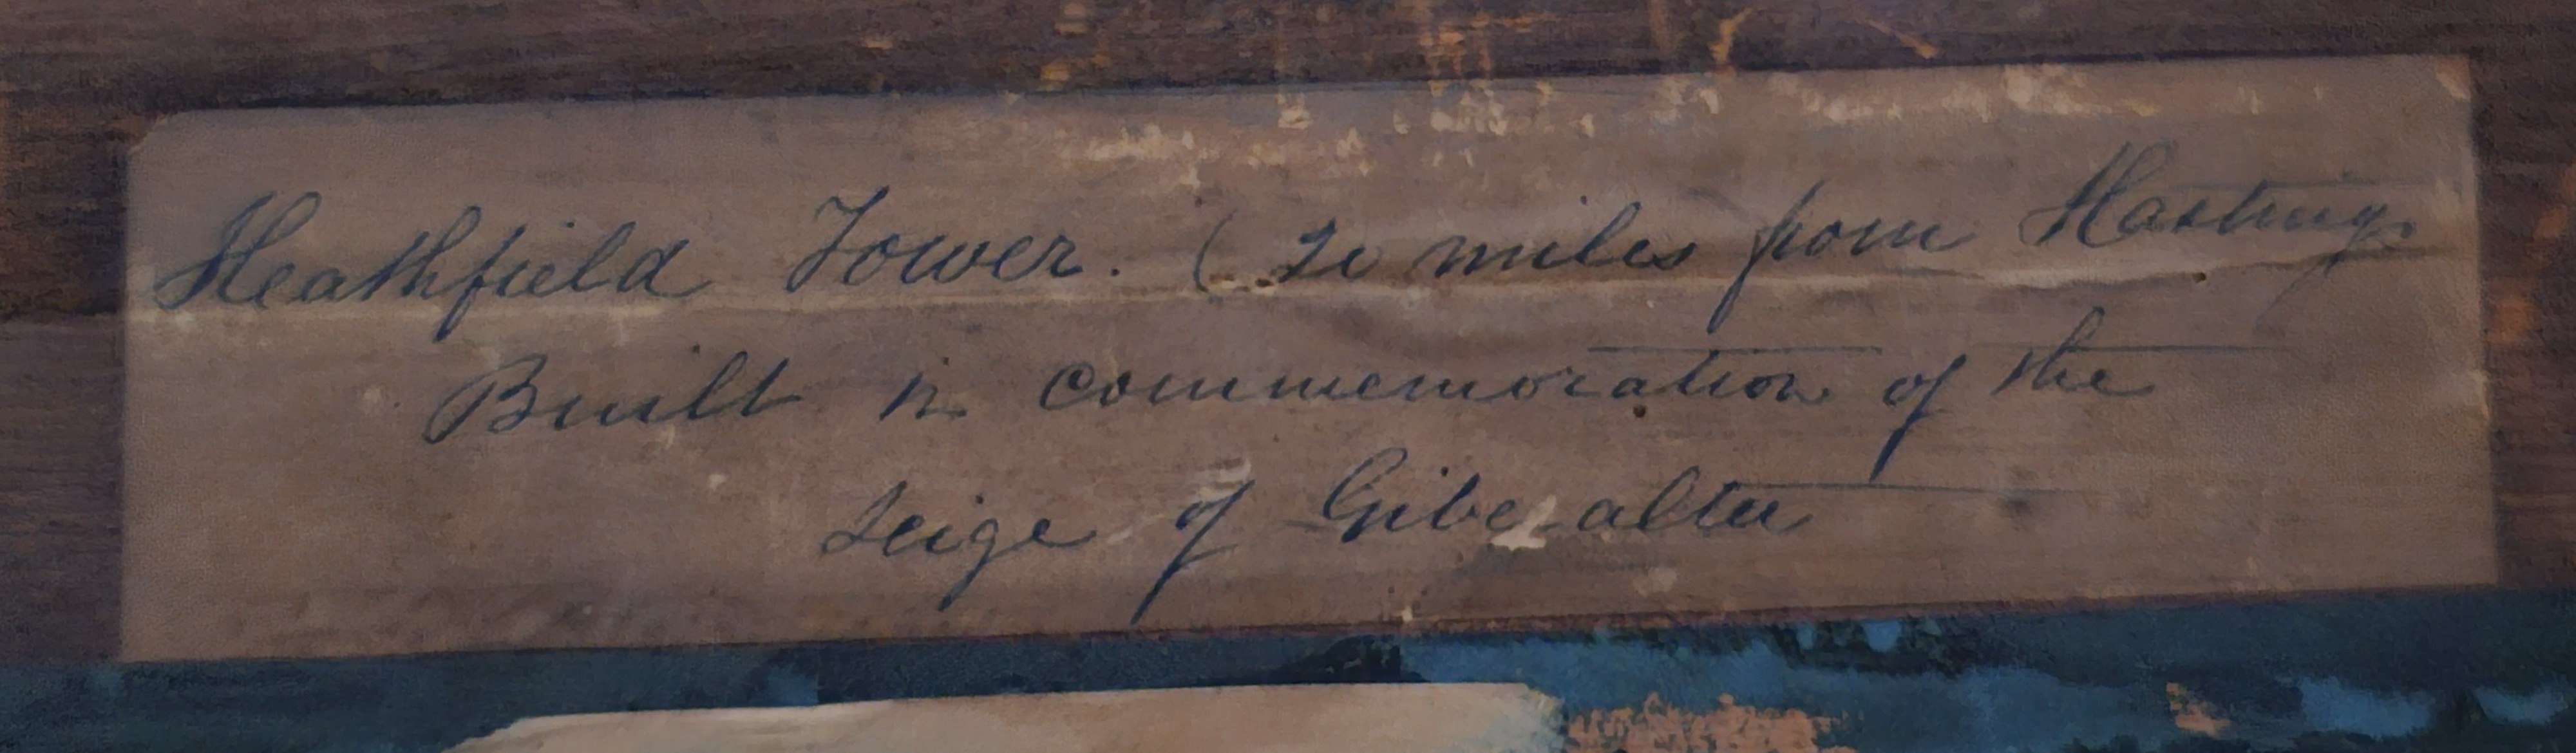 Heathfield Tower. (20 miles from Hastings
Built in commemoration of the
Seige of Giberalter